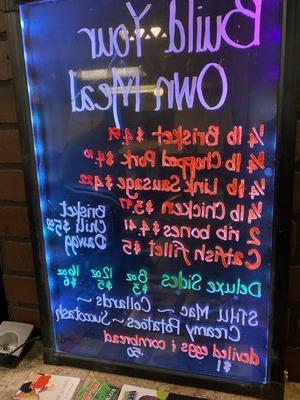 Build Your
Own Meal
1/4 lb Brisket $4.91
1/4 lb Chopped Pork $4.10
1/4 lb Link Sausage $4.22
1/4 lb Chicken $3.97
2 rib bones $4.41
Catfish fillet $5
Brisket
Chili $5.50
Dawgg
Deluxe Sides 8oz $3 12oz $5 16oz $6
STHU Mac ~ Collards ~
Creamy Potatoes ~ Succotash
deviled eggs & cornbread
$1 .50